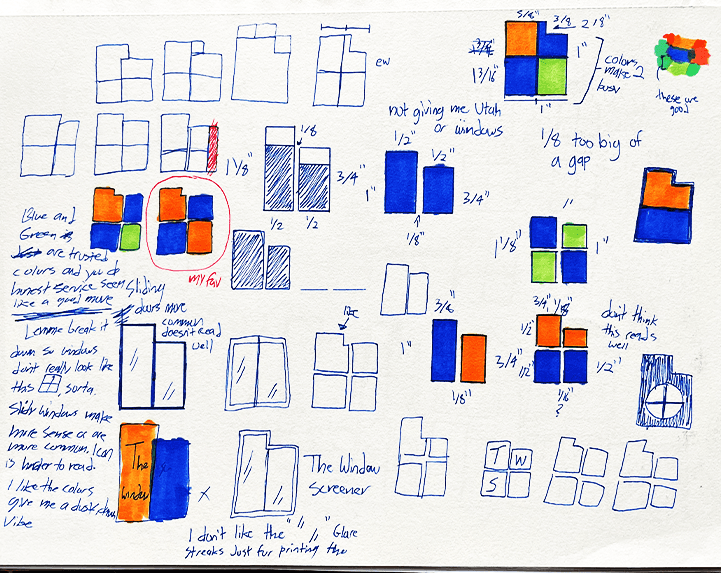 5/8"
3/8
2 1/8"
3/4"
1"
1 3/16"
1"
colors
make 2
busy
these are
good
ew
not giving me Utah
or windows
1/8 too big of
a gap
1/8
1 1/8"
3/4"
1/2
1/2
1/2"
1/2"
1"
3/4"
1/8"
1"
1 1/8"
1"
my fav
Blue and
Green
are trusted
colors and you do
honest service seem
like a good move
Sliding
doors more
common
doesn't read
well
Lemme break it
down so windows
dont really look like
this, sorta.
Slidr windows make
more sense or are
more common. Icon
is harder to read.
I like the colors
give me a dusk, dawn
vibe
3/8"
1"
3/4"
1/8"
3/4"
1/8"
1/2"
1/2"
1/2"
1/16"
?
don't think
this reads
well
The
Window
x
The Window
Screener
T W
S
I don't like the "〃" Glare
streaks just for printing the